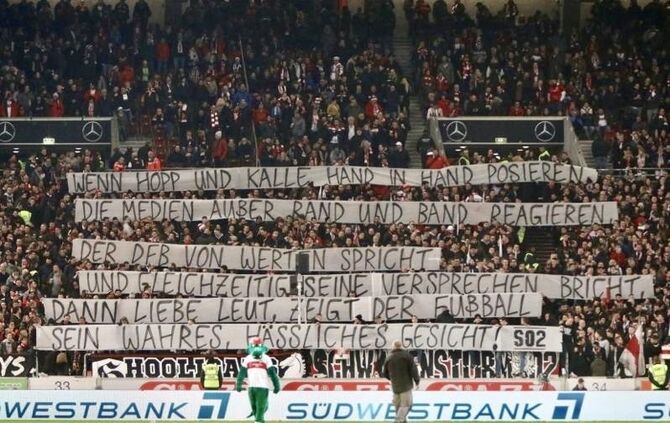 WENN HOPP UND KALLE HAND IN HAND POSIEREN,
DIE MEDIEN AUẞER RAND UND BAND REAGIEREN,
DER DFB VON WERTEN SPRICHT
UND GLEICHZEITIG SEINE VERSPRECHEN BRICHT,
DANN LIEBE LEUT, ZEIGT DER FUẞBALL
SEIN WAHRES, HÄSSLICHES GESICHT S02
SCHWABENSTURM 02
33
GAZI
GAZI
34
SÜDWESTBANK
SÜDWESTBANK
SÜDWE